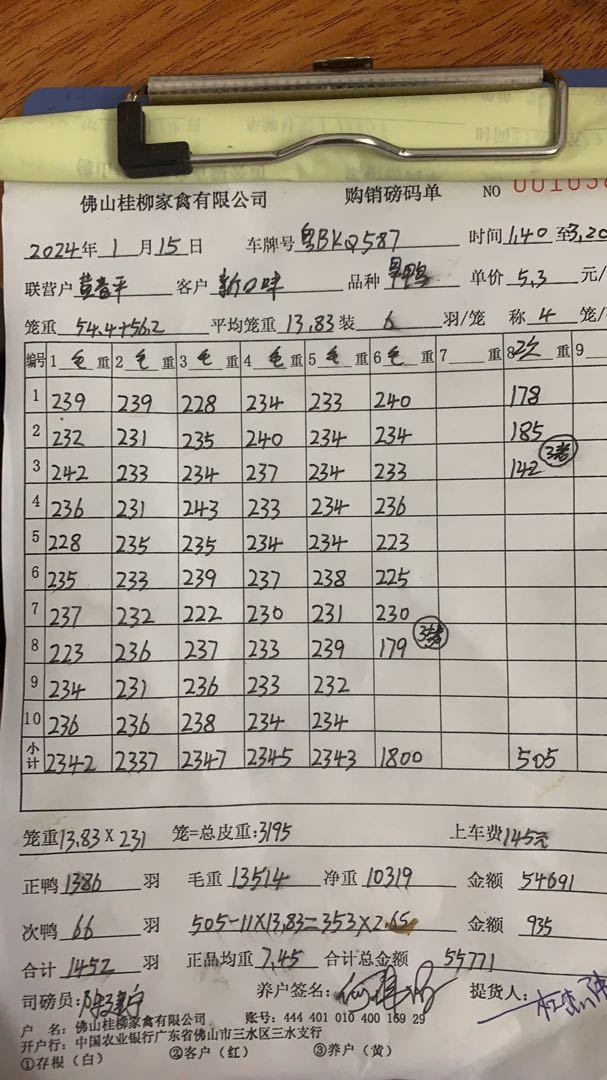 佛山桂柳家禽有限公司 购销磅码单 NO 001038
2024年 1 月 15 日 车牌号 粤BKQ587 时间 1,40 至 3,20
联营户 客户 新口味 品种 旱鸭 单价 5,3 元/
笼重 54.4+56.2 平均笼重 13,83 装 6 羽/笼 称 4 笼/
编号 1 毛 重 2 毛 重 3 毛 重 4 毛 重 5 毛 重 6 毛 重 7 重 8 次 重 9
1 239 239 228 234 233 240 178
2 232 231 235 240 234 234 185
3 242 233 234 237 234 233 142 3笼
4 236 231 243 233 234 236
5 228 235 235 234 234 223
6 235 233 239 237 238 225
7 237 232 222 230 231 230
8 223 236 237 233 239 179 3笼
9 234 231 236 233 232
10 236 236 238 234 234
小计 2342 2337 2347 2345 2343 1800 505
笼重 13,83 X 231 笼=总皮重: 3195 上车费 145元
正鸭 1386 羽 毛重 13514 净重 10319 金额 54691
次鸭 66 羽 505-11X13,83=353X2,65 金额 935
合计 1452 羽 正品均重 7,45 合计总金额 55771
司磅员: 养户签名: 提货人:
户 名: 佛山桂柳家禽有限公司 账号: 444 401 010 400 169 29
开户行: 中国农业银行广东省佛山市三水区三水支行
①存根（白） ②客户（红） ③养户（黄）